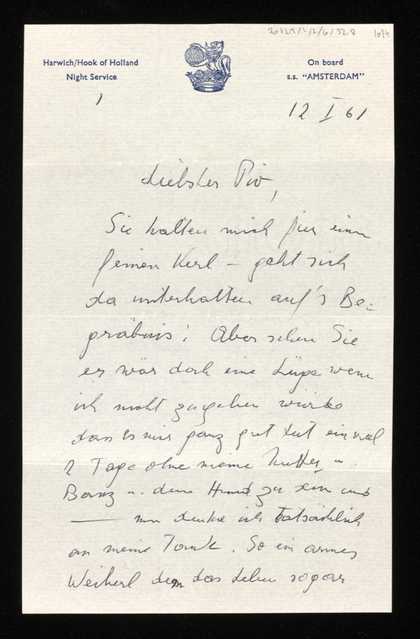 20129/1/2/6/32.8
1 of 4
Harwich/Hook of Holland
Night Service
On board
s.s. "AMSTERDAM"
1
12 I 61
Liebster Pio,
Sie halten mich für einen
feinen Kerl – geht sich
da unterhalten auf's Be-
gräbnis! Aber sehen Sie
es wär doch eine Lüge wenn
ich nicht zugeben würde
dass es mir ganz gut tut einmal
2 Tage ohne meine Mutter u.
u. dem Hund zu sein und
— nun denke ich tatsächlich
an meine Tante. So ein armes
Weiberl dem das Leben sogar